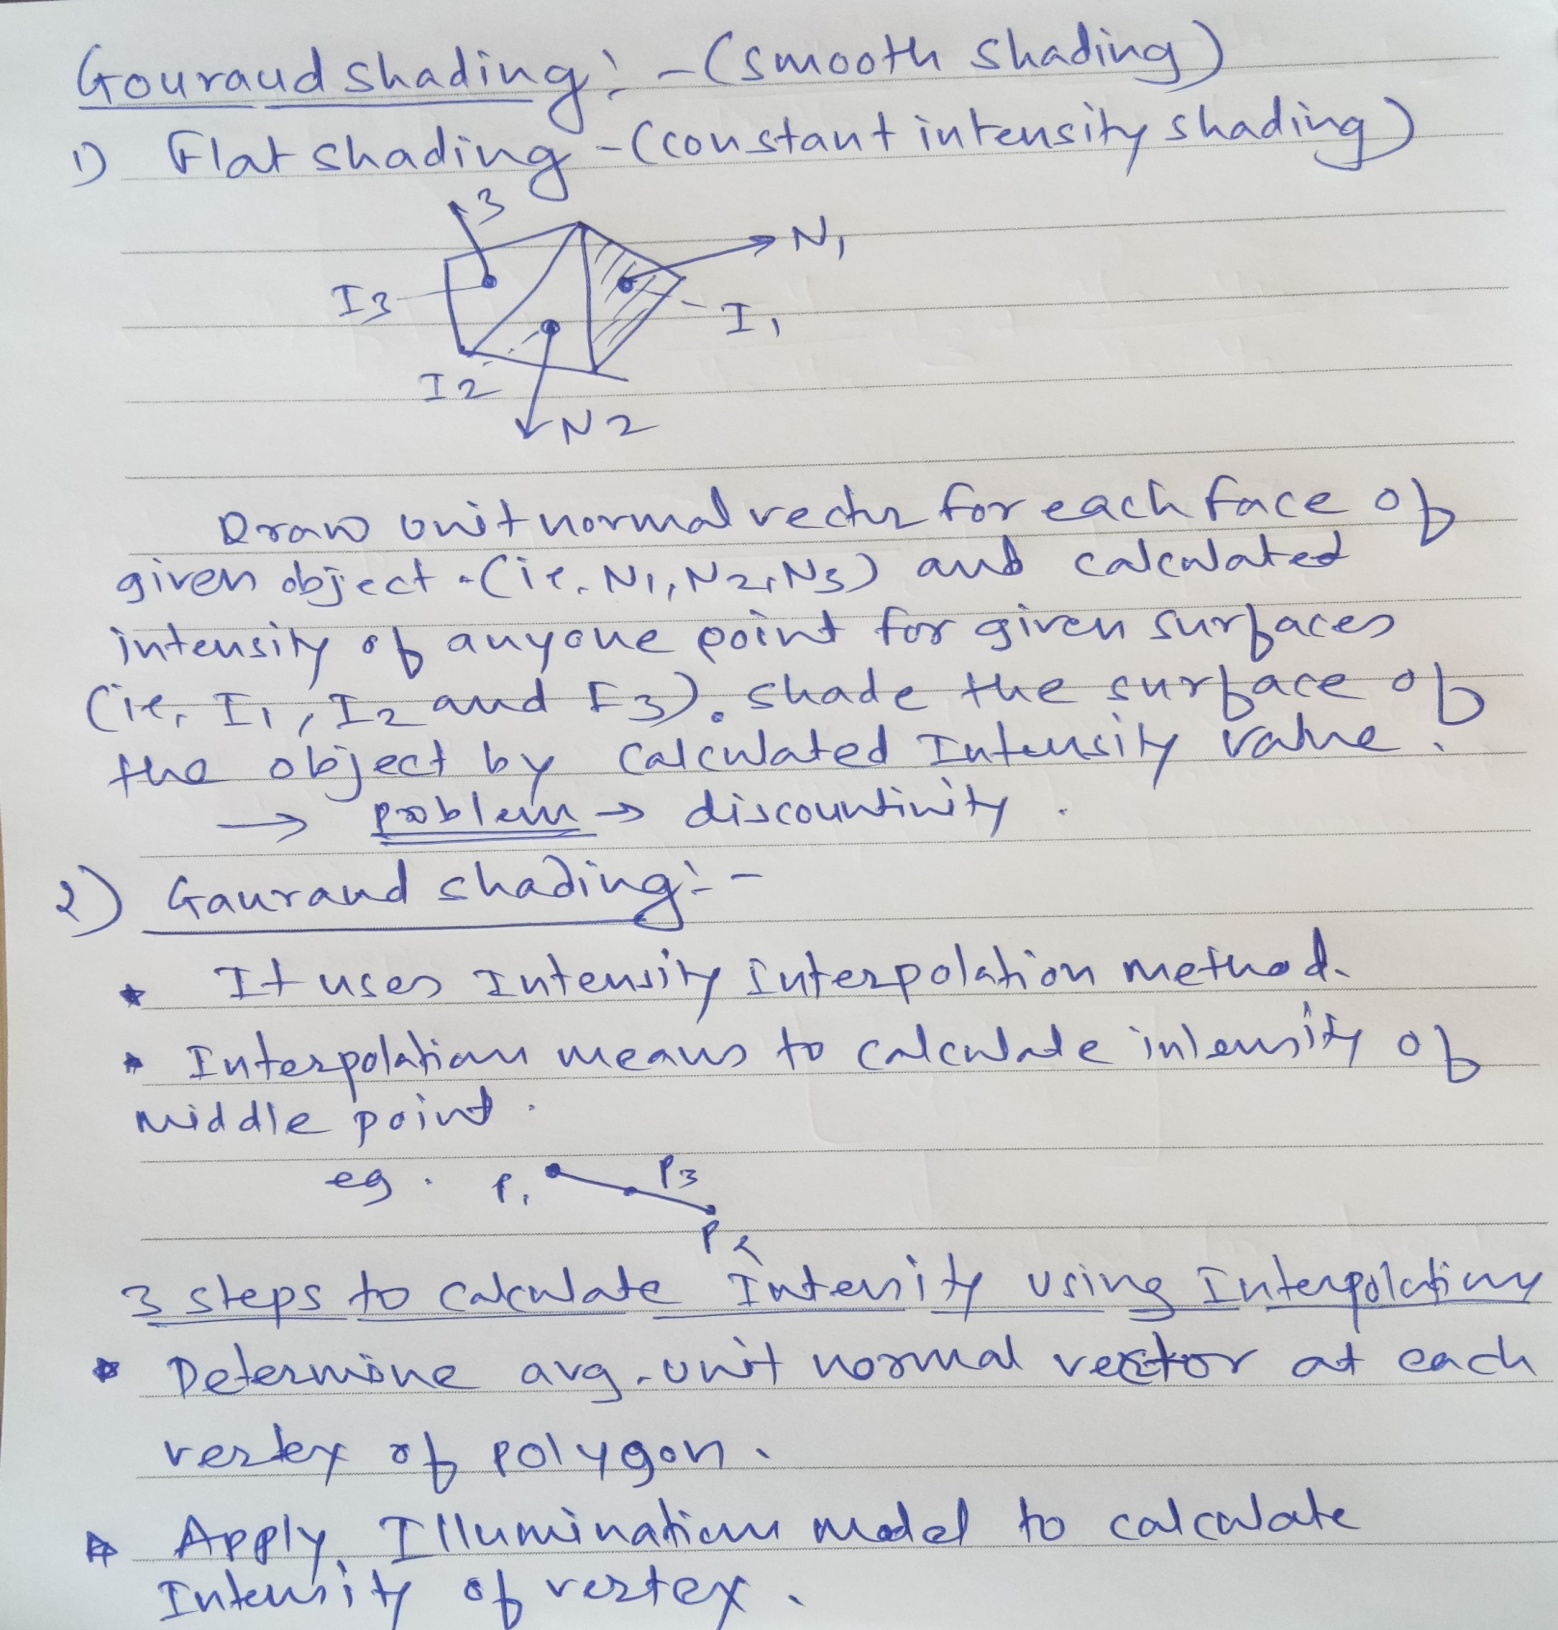 Gouraud shading :- (smooth shading)
1) Flat shading - (constant intensity shading)
3
N1
I3
I1
I2
N2
Draw unit normal vector for each face of
given object. (ie. N1, N2, N3) and calculated
intensity of anyone point for given surfaces
(ie, I1, I2 and I3). shade the surface of
the object by calculated Intensity value.
→ problem → discountinity.
2) Gauraud shading :-
* It uses Intensity Interpolation method.
* Interpolation means to calculate intensity of
middle point.
eg. P1 P3
P2
3 steps to calculate Intensity using Interpolation
* Determine avg. unit normal vector at each
vertex of polygon.
* Apply Illumination model to calculate
Intensity of vertex.